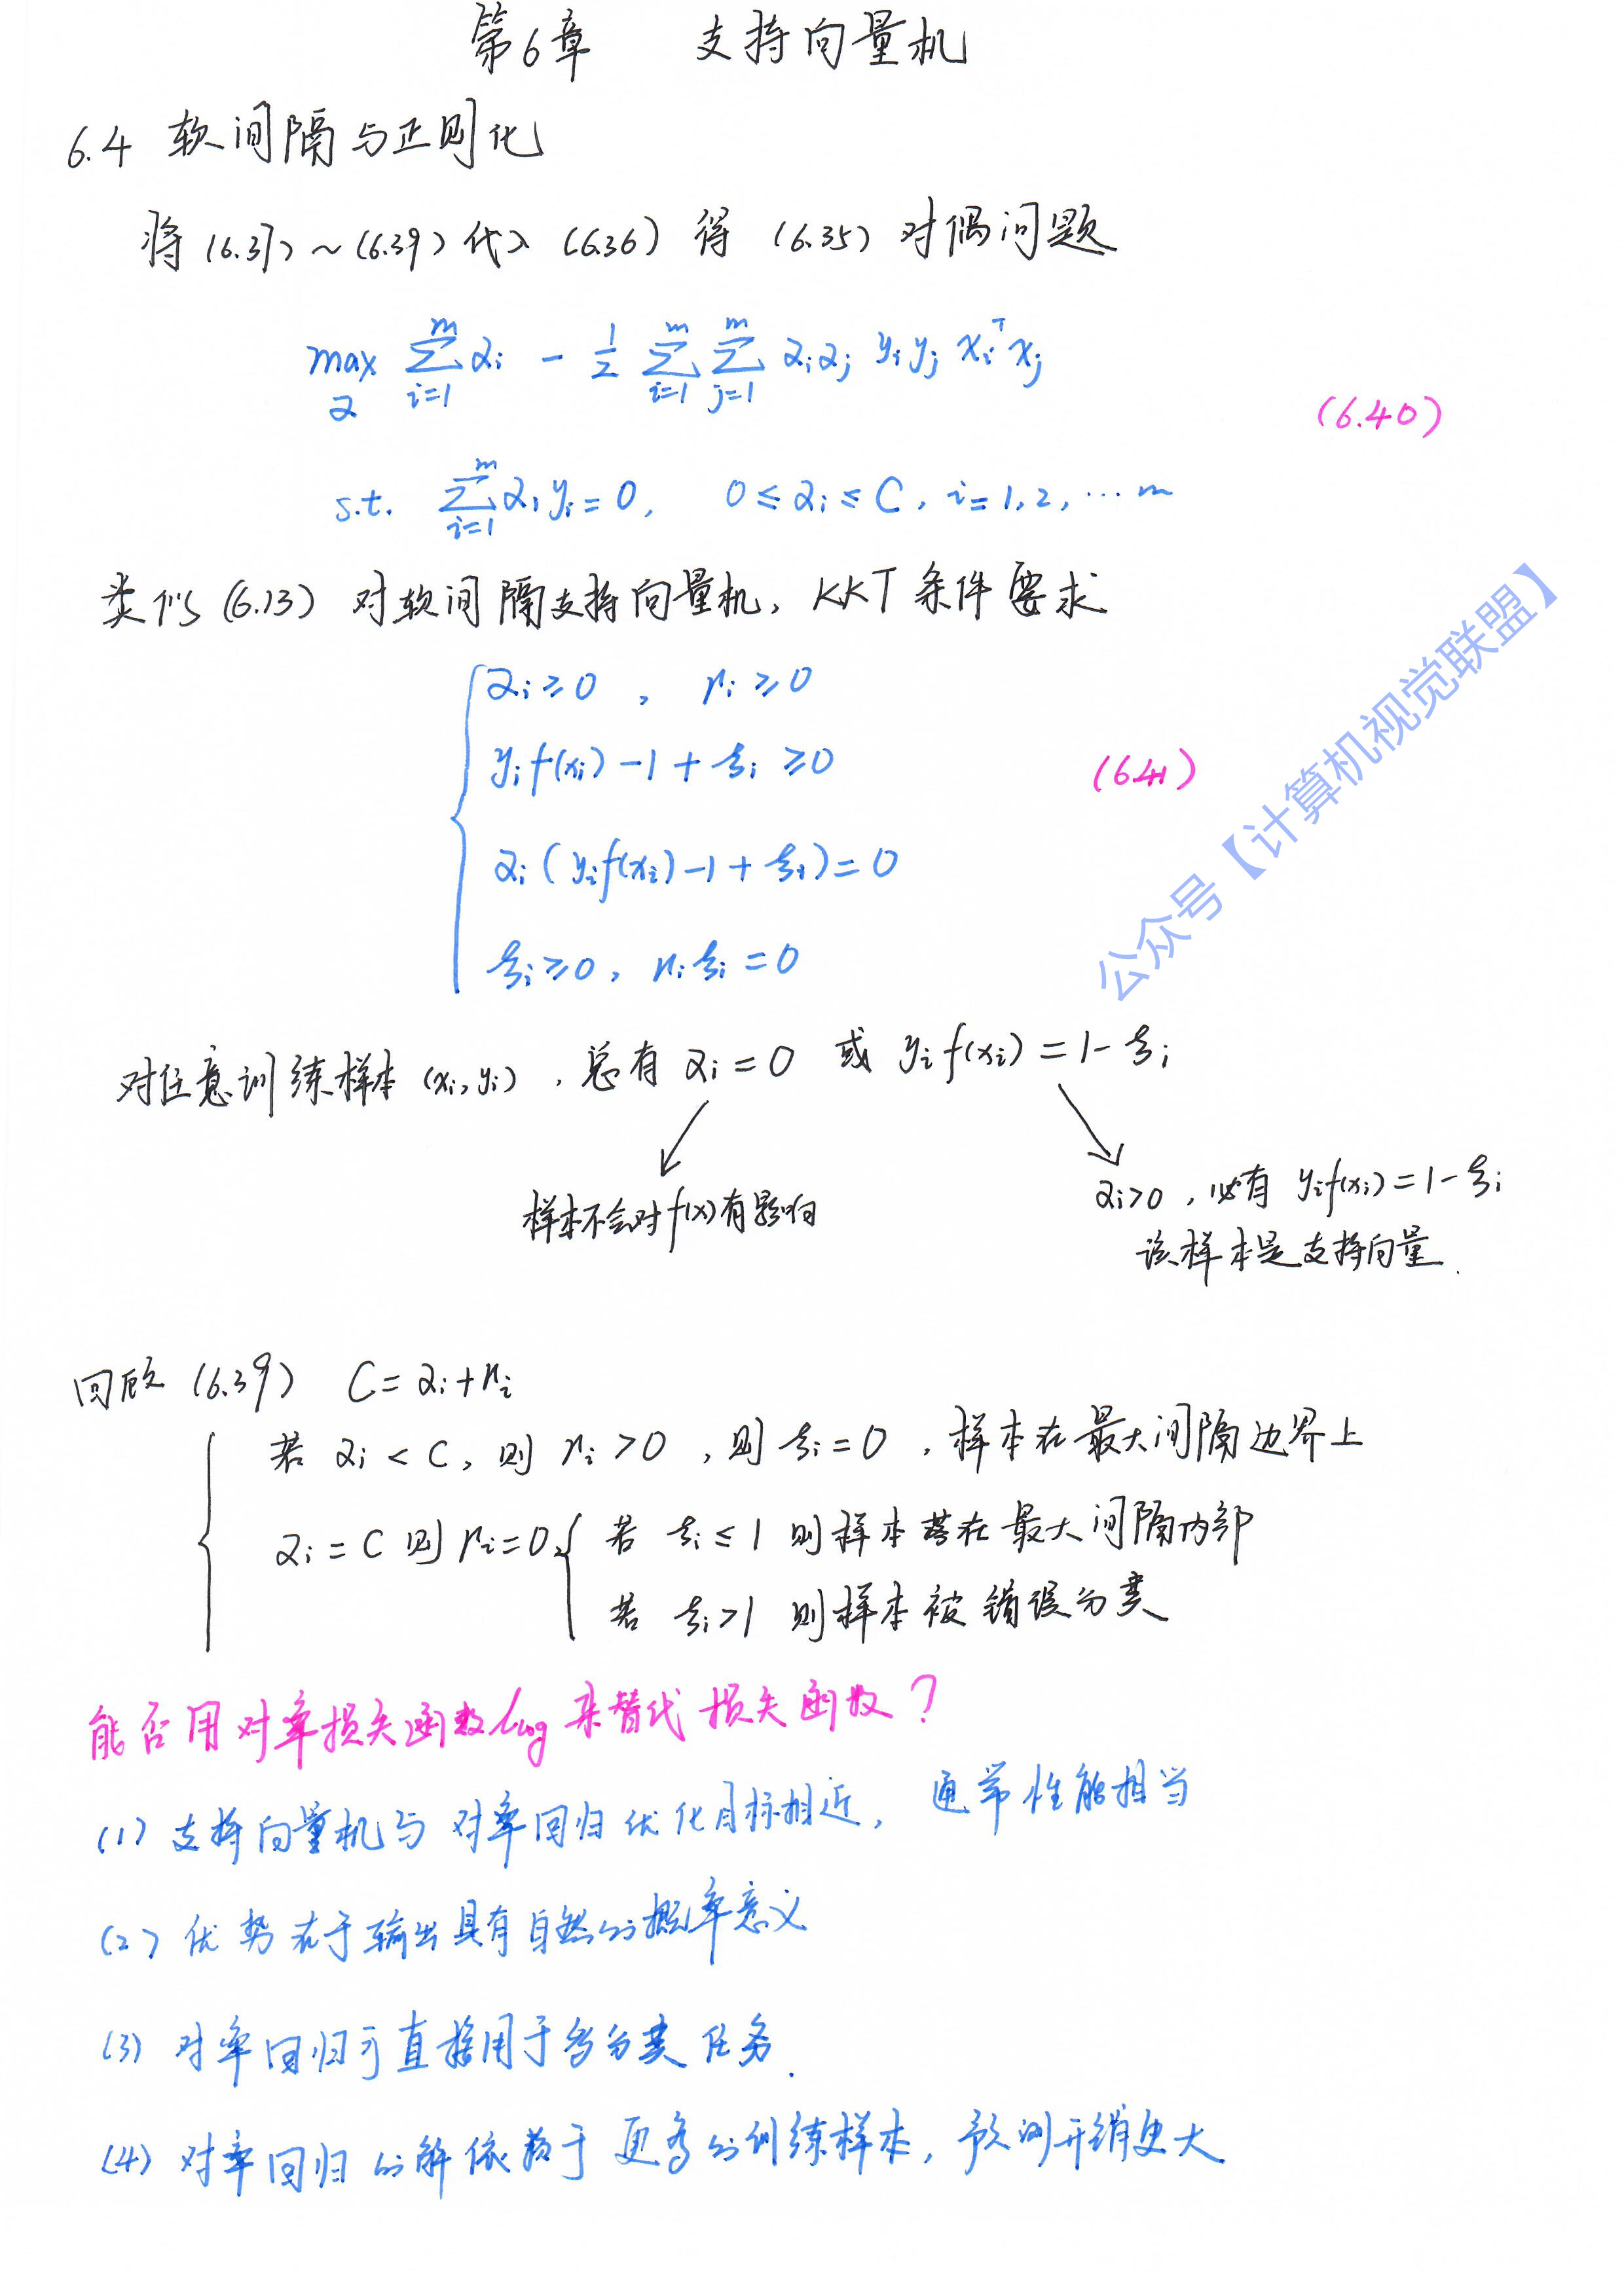 第6章 支持向量机
6.4 软间隔与正则化
将(6.37)~(6.39)代入(6.36)得(6.35)对偶问题
max_α Σ_{i=1}^{m} α_i - 1/2 Σ_{i=1}^{m} Σ_{j=1}^{m} α_i α_j y_i y_j x_i^T x_j
(6.40)
s.t. Σ_{i=1}^{m} α_i y_i = 0, 0 ≤ α_i ≤ C, i=1,2,…m
类似(6.13)对软间隔支持向量机,KKT条件要求
α_i ≥ 0, μ_i ≥ 0
y_i f(x_i) - 1 + ξ_i ≥ 0
(6.41)
α_i (y_i f(x_i) - 1 + ξ_i) = 0
ξ_i ≥ 0, μ_i ξ_i = 0
对任意训练样本(x_i, y_i),总有 α_i = 0 或 y_i f(x_i) = 1 - ξ_i
样本不会对f(x)有影响
α_i > 0,必有 y_i f(x_i) = 1 - ξ_i
该样本是支持向量.
回顾(6.39) C = α_i + μ_i
若 α_i < C,则 μ_i > 0,则 ξ_i = 0,样本在最大间隔边界上
α_i = C 则 μ_i = 0, 若 ξ_i ≤ 1 则样本落在最大间隔内部
若 ξ_i > 1 则样本被错误分类
能否用对率损失函数 l_log 来替代损失函数?
(1) 支持向量机与对率回归优化目标相近,通常性能相当
(2) 优势在于输出具有自然的概率意义
(3) 对率回归可直接用于多分类任务.
(4) 对率回归的解依赖于更多的训练样本,预测开销更大
公众号【计算机视觉联盟】